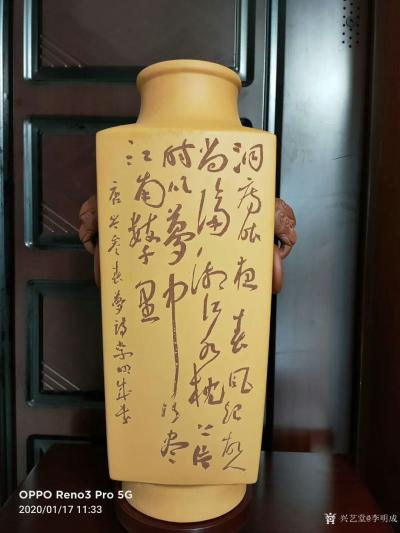 洞房昨夜春风起故人
尚隔湘江水枕上片
时春梦中行尽
江南数千里
唐岑参春梦诗明成书
OPPO Reno3 Pro 5G
2020/01/17 11:33
兴艺堂@李明成